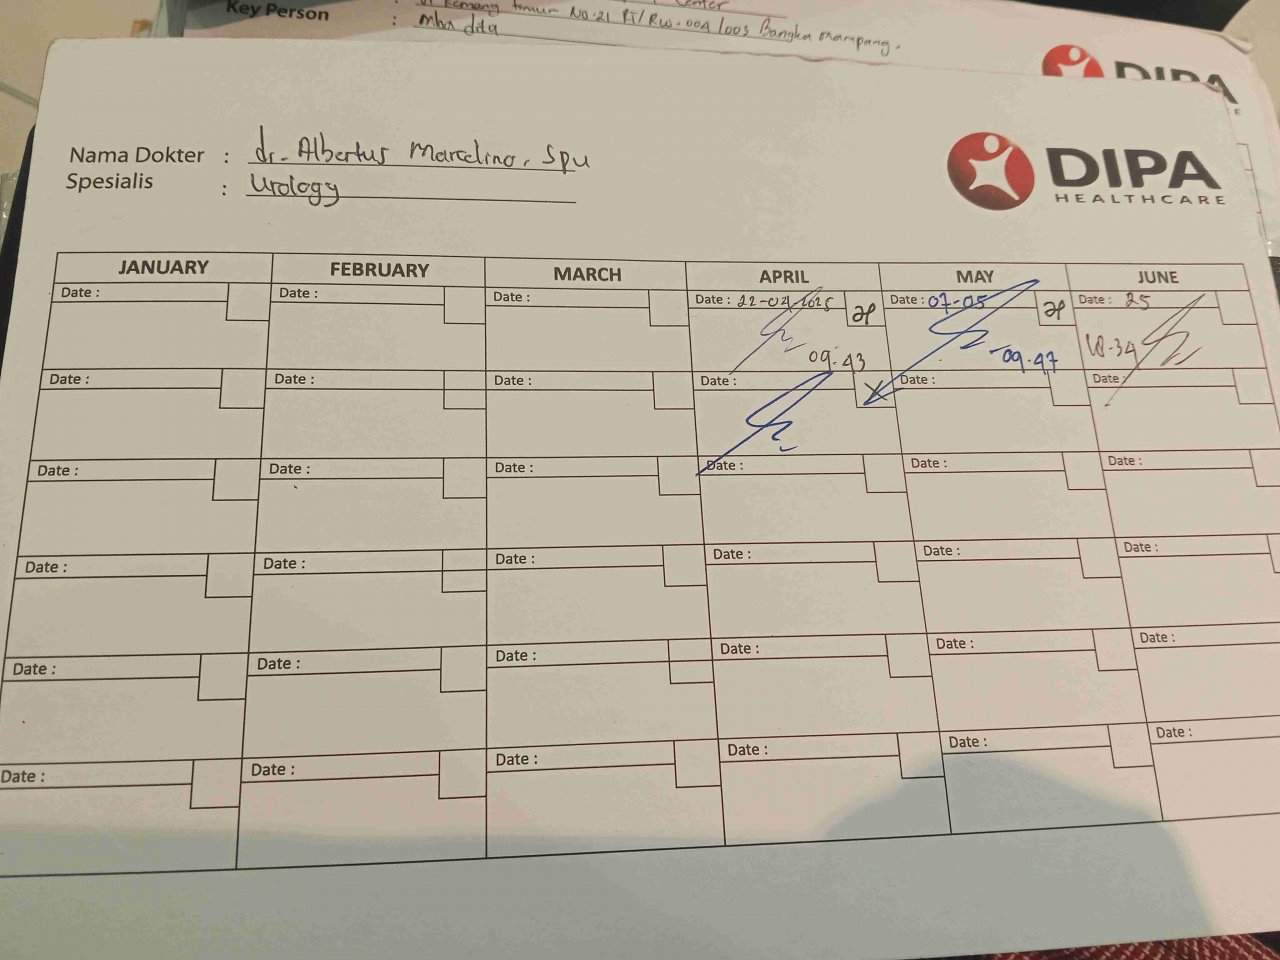 Key Person : mba dita
Kemang timur No.21 RT/RW.004/005 Bangka Mampang.
DIPA
Nama Dokter : dr. Albertus Marcelino, Spu
Spesialis : Urology
DIPA
HEALTHCARE
JANUARY FEBRUARY MARCH APRIL MAY JUNE
Date : Date : Date : Date : 22-04-2025 Date : 07-05 Date : 25
09.43 09.47 18.34
Date : Date : Date : Date : Date : Date :
Date : Date : Date : Date : Date : Date :
Date : Date : Date : Date : Date : Date :
Date : Date : Date : Date : Date : Date :
Date : Date : Date : Date : Date : Date :